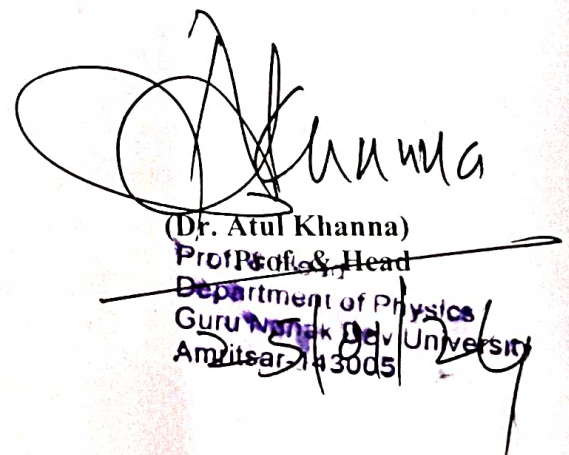 AKhanna
(Dr. Atul Khanna)
Prof. & Head
Department of Physics
Guru Nanak Dev University
Amritsar-143005